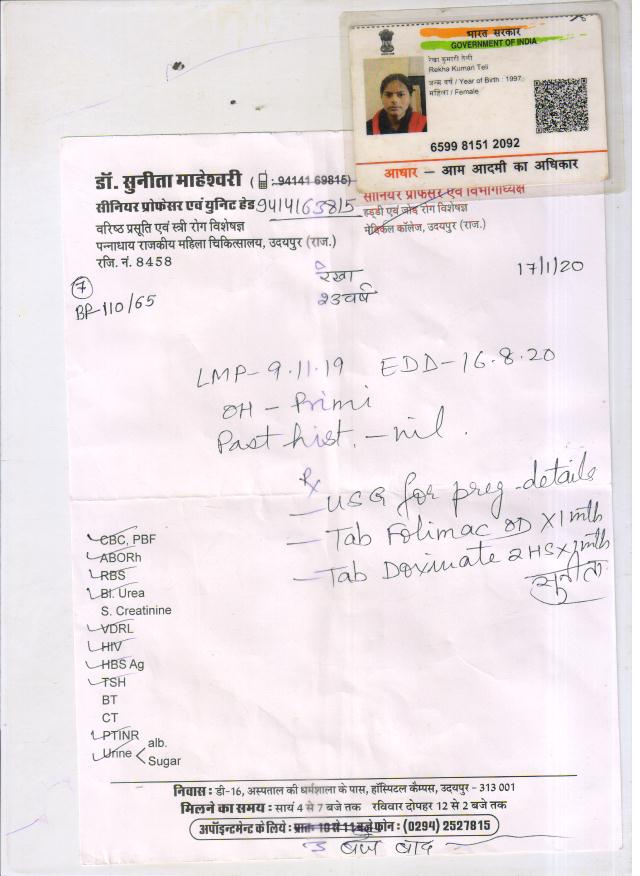 भारत सरकार
GOVERNMENT OF INDIA
रेखा कुमारी तेली
Rekha Kumari Teli
जन्म वर्ष / Year of Birth : 1997
महिला / Female
6599 8151 2092
आधार – आम आदमी का अधिकार
डॉ. सुनीता माहेश्वरी ( : 94141 69815)
सीनियर प्रोफेसर एवं युनिट हेड 9414163815
वरिष्ठ प्रसूति एवं स्त्री रोग विशेषज्ञ
पन्नाधाय राजकीय महिला चिकित्सालय, उदयपुर (राज.)
रजि. नं. 8458
सीनियर प्रोफेसर एवं विभागाध्यक्ष
हड्डी एवं जोड़ रोग विशेषज्ञ
मेडिकल कॉलेज, उदयपुर (राज.)
17/1/20
रेखा
23 वर्ष
7
BP-110/65
LMP- 9.11.19 EDD-16.8.20
OH - Primi
Past hist. - nil.
Rx
- USG for preg. details
- Tab Folimac OD X 1 mth
- Tab Doxinate 2 HS X 1 mth
सुनीता
CBC, PBF
ABORh
RBS
Bl. Urea
S. Creatinine
VDRL
HIV
HBS Ag
TSH
BT
CT
PTINR
Urine < alb.
Sugar
निवास : डी-16, अस्पताल की धर्मशाला के पास, हॉस्पिटल कैम्पस, उदयपुर - 313 001
मिलने का समय : सायं 4 से 7 बजे तक रविवार दोपहर 12 से 2 बजे तक
अपॉइन्टमेन्ट के लिये : प्रातः 10 से 11 बजे फोन : (0294) 2527815
3 बजे बाद